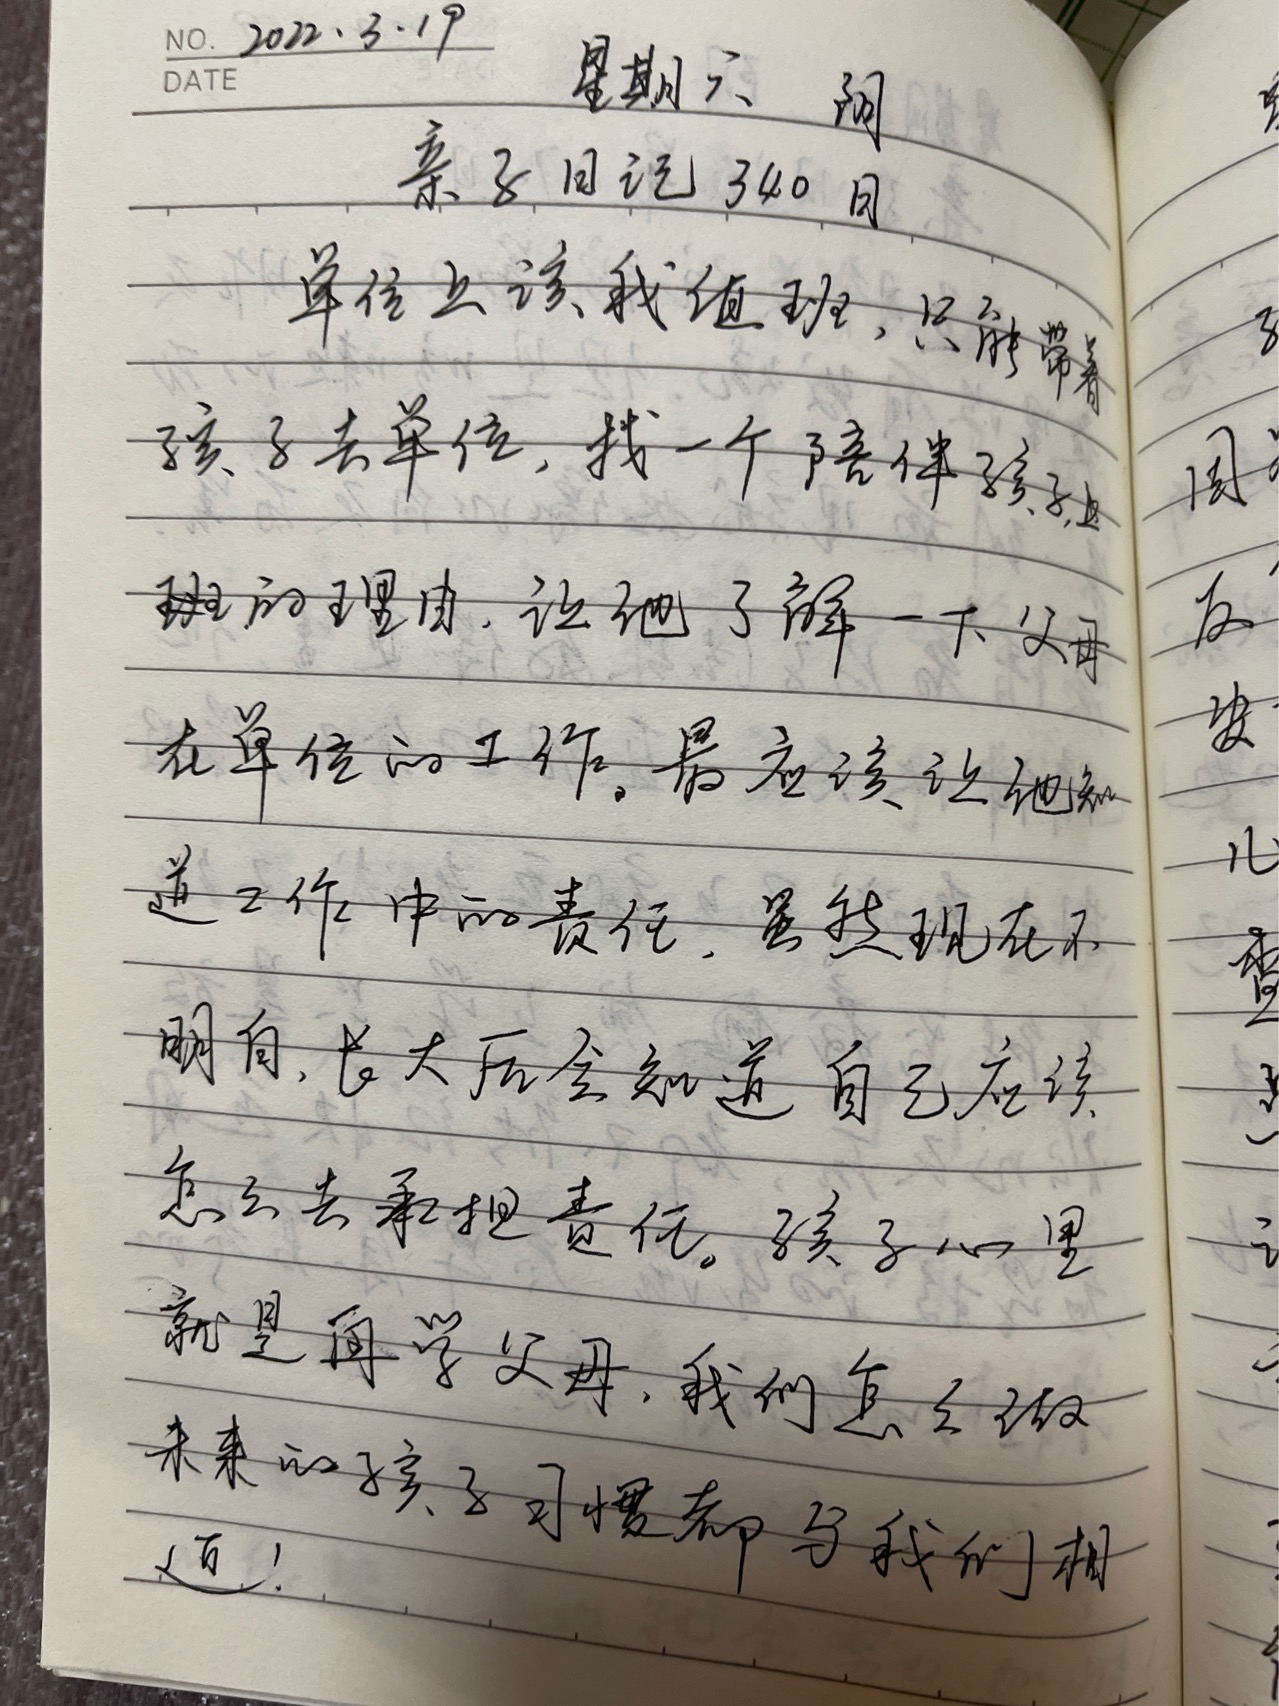 NO. 2022.3.19
DATE
星期六 阴
亲子日记340日
单位上该我值班，只能带着
孩子去单位，找一个陪伴孩子上
班的理由，让他了解一下父母
在单位的工作。最应该让他知
道工作中的责任，虽然现在不
明白，长大后会知道自己应该
怎么去承担责任。孩子心里
就是再学父母，我们怎么做
未来的孩子习惯都与我们相